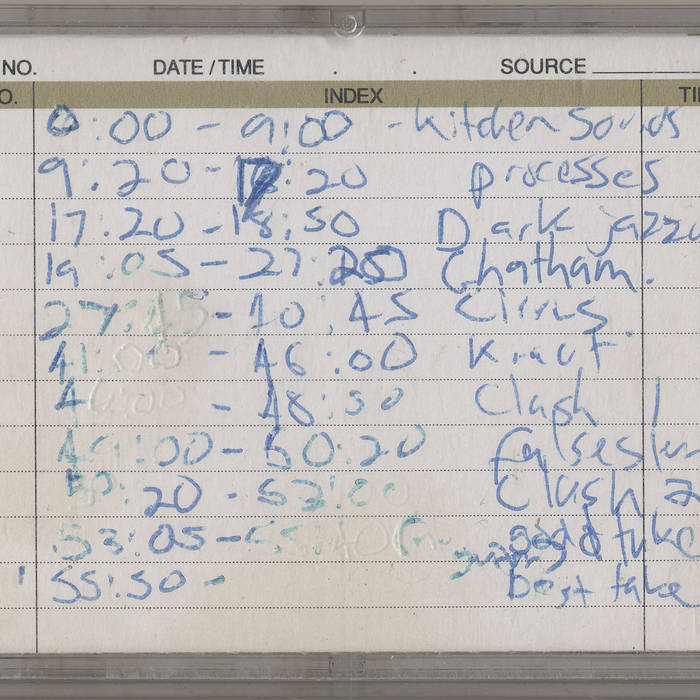 NO. DATE / TIME . . SOURCE
O. INDEX TI
0:00 - 9:00 - Kitchen Sounds
9.20 - 17:20 processes
17:20 - 18:50 Dark jazz
19:05 - 27:25 Chatham.
27:45 - 40:45 Cirrus.
41:00 - 46:00 Kraut
46:00 - 48:50 Clash 1
:00 - 50:20 false
50:20 - 53:00 Clash 2
53:05 - 55:40 good take
55:50 - best take